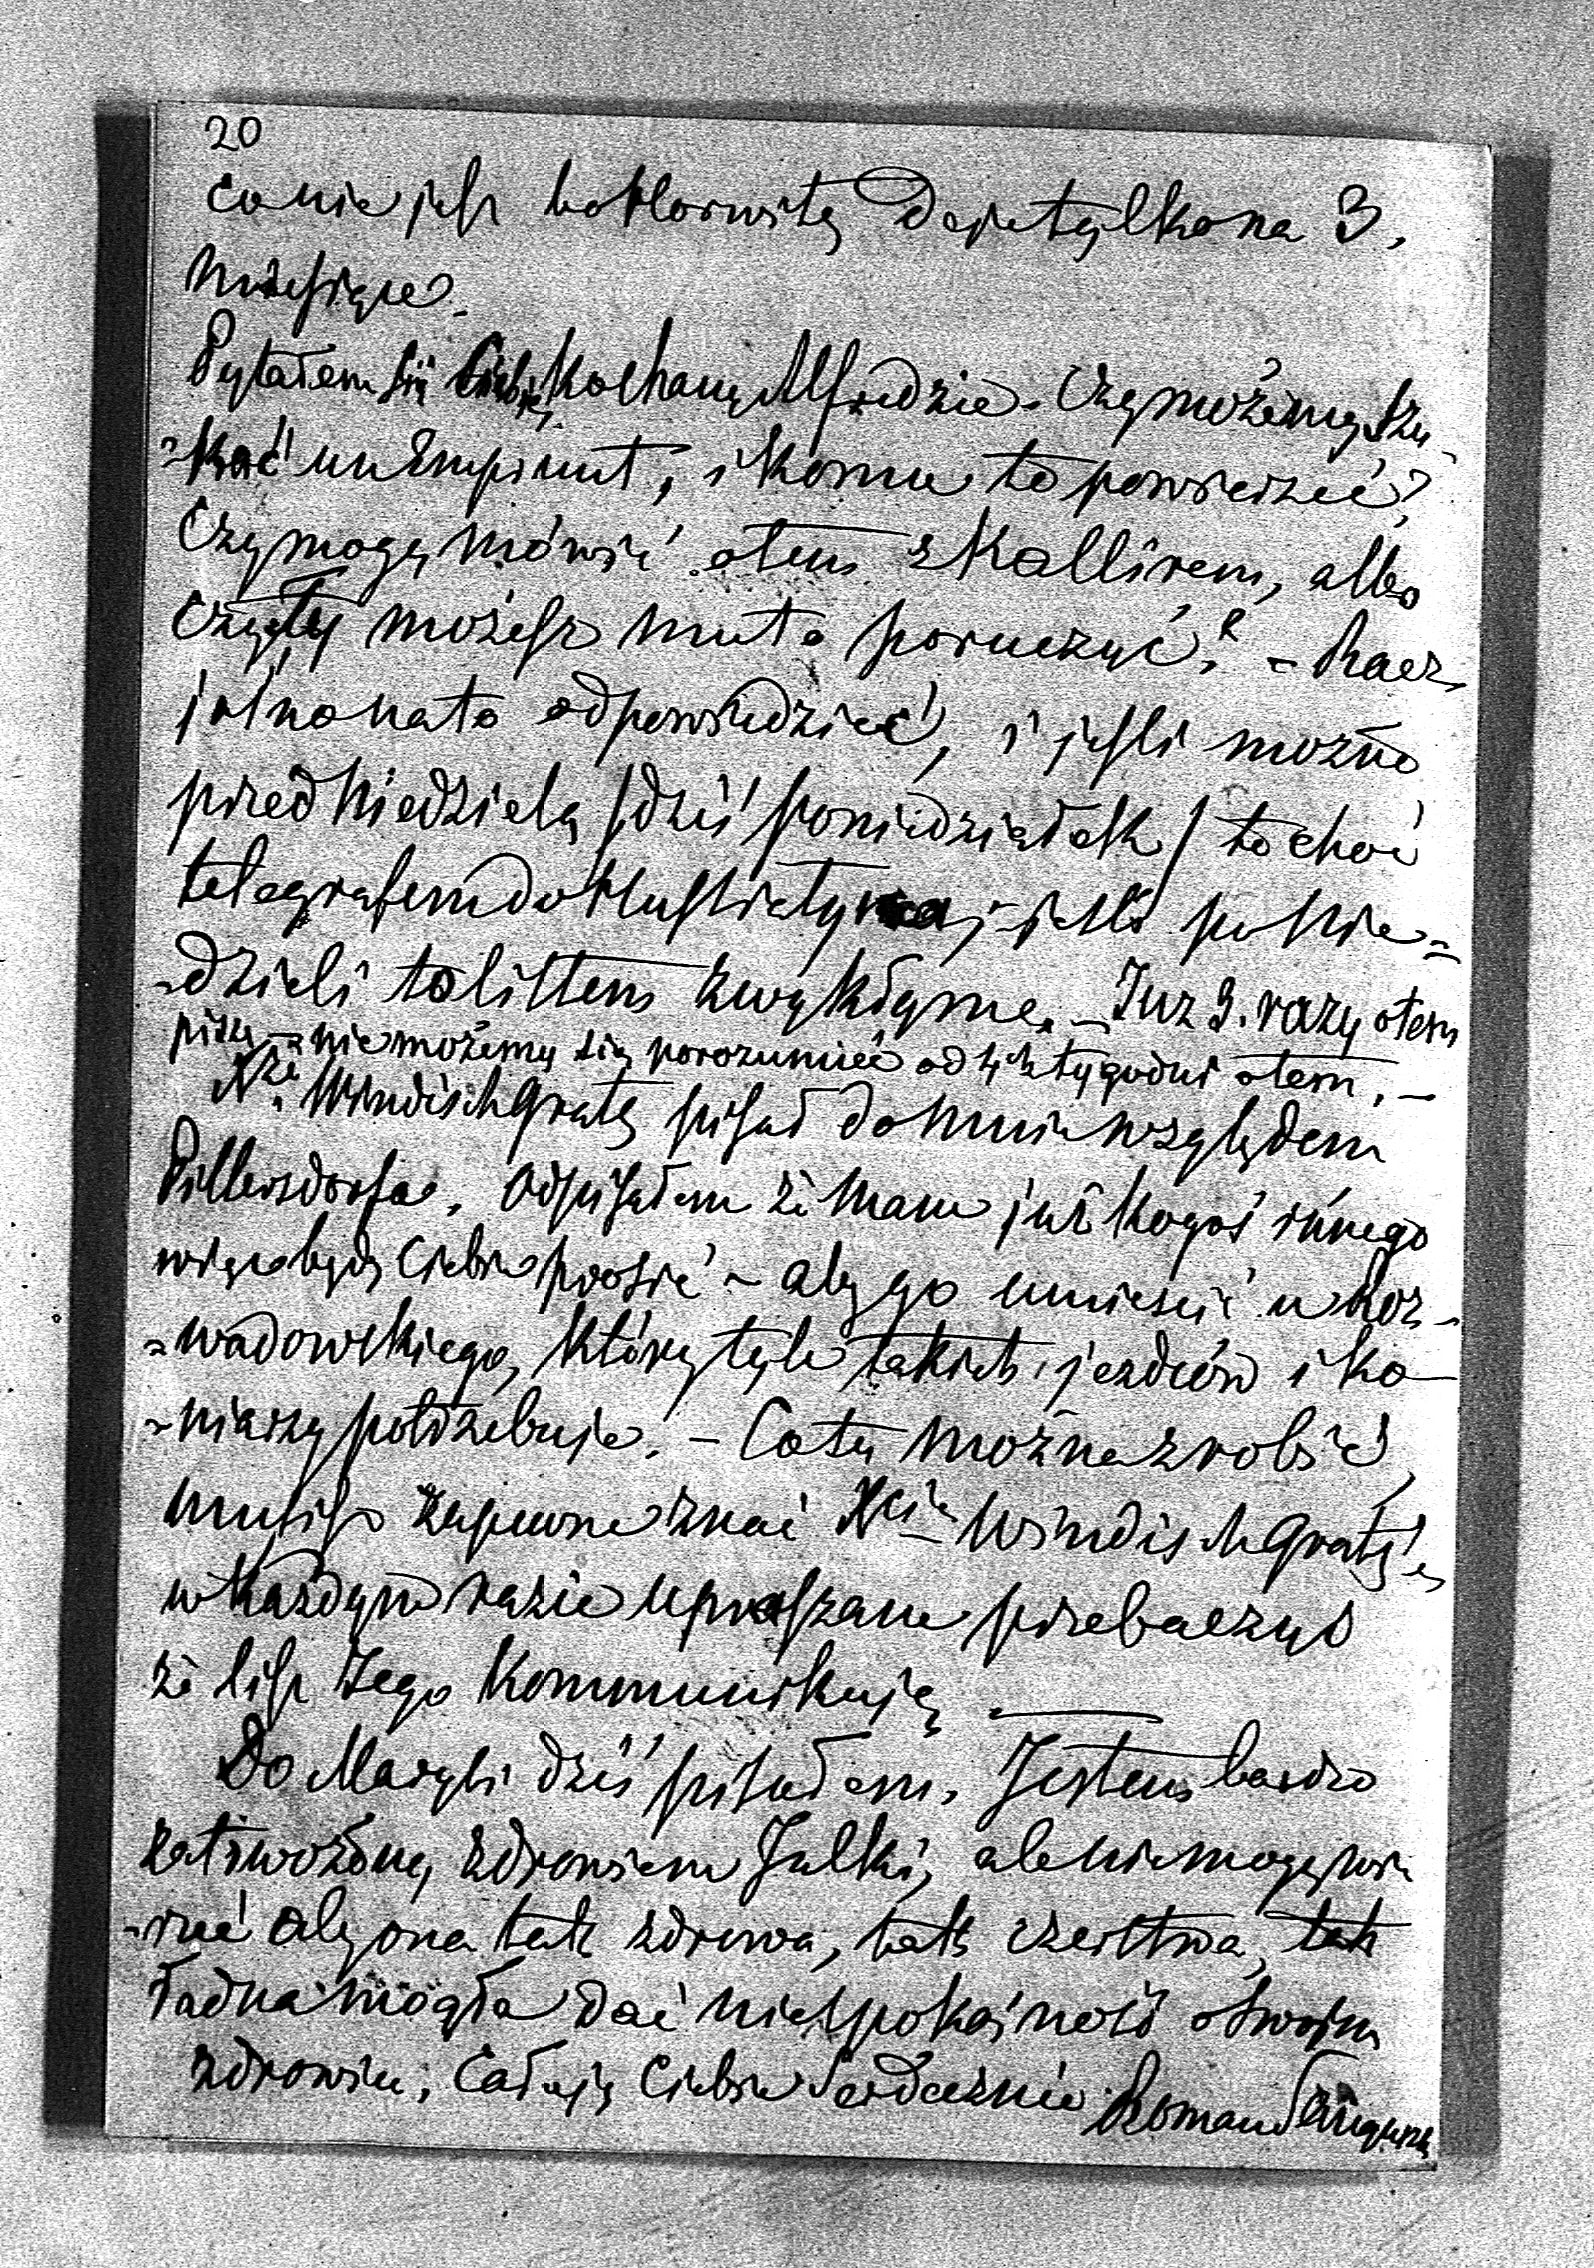 20
co nie jest bo Horwitz daje tylko na 3.
miesiące.
Pytałem się Ciebie, kochany Alfredzie. Czy możemy szu-
-kać un Emprunt, i komu to powierzić?
Czy mogę mówić o tem z Kallirem, albo
Czy ty możesz mu to poruczyć? – Racz
jasno na to odpowiedzieć, i jeśli można
przed Niedzielą /dziś poniedziałek/ to choć
telegrafem do Husiatyna; – jeśli po Nie-
-dzieli to listem zwykłym. – Już 3. razy o tem
piszę – nie możemy się porozumieć od 4ch tygodni o tem. –
Xże WindischGratz pisał do mnie względem
Pillersdorfa. Odpisałem że mam już kogoś innego
więc będę Ciebie prosić – aby go umieścić u Roz-
-wadowskiego, który tyle takich jezdców i ko-
-niarzy potrzebuje. – Co tu można zrobić,
musisz zapewne znać Xcia WindischGratz,
w każdym razie upraszam przebaczyć
że list Jego kommunikuję.
Do Maryli dziś pisałem. Jestem bardzo
zatrwożony zdrowiem Julki, ale nie mogę wie
-rzić aby ona tak zdrowa, tak czerstwa, tak
ładna mogła dać niespokojność o swojem
zdrowiu. Całuję Ciebie serdecznie Roman Sanguszko